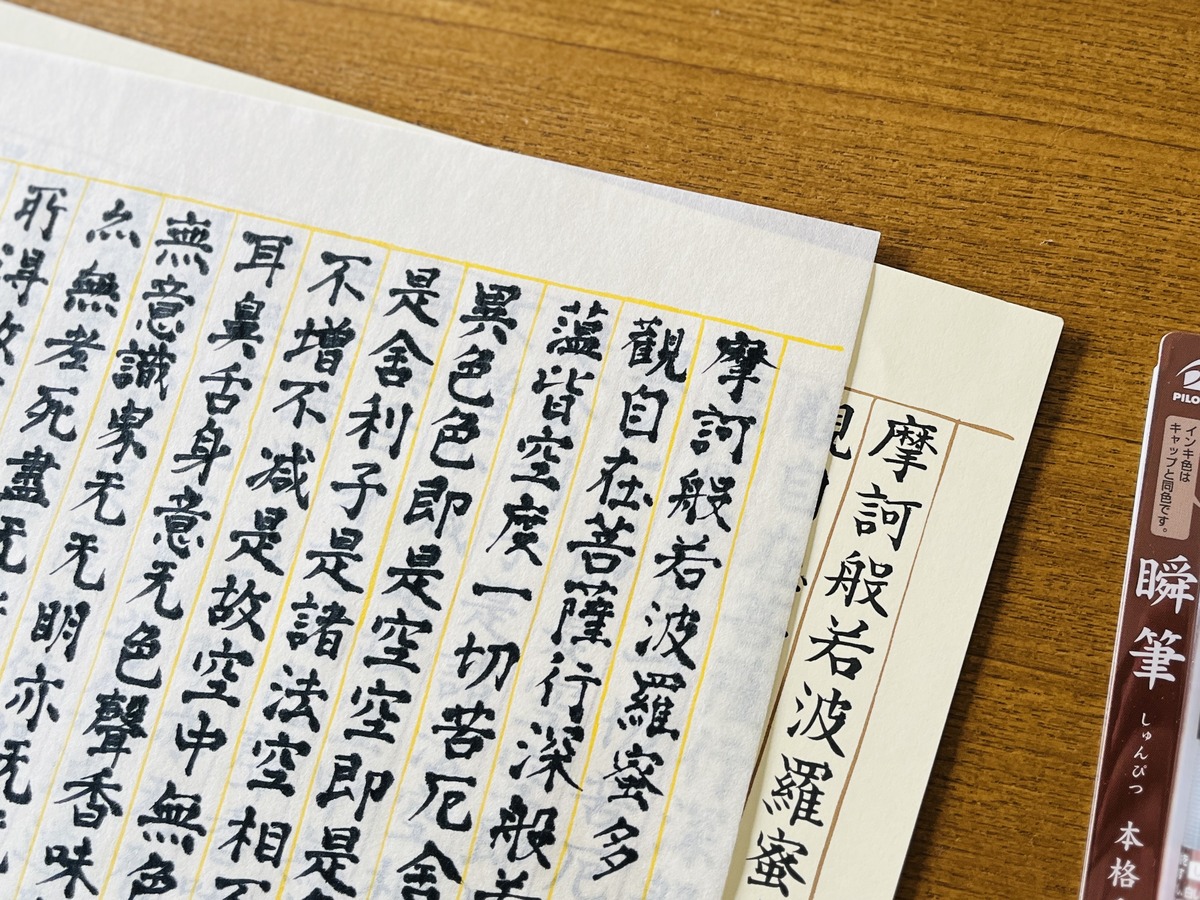 摩訶般若波羅蜜多
觀自在菩薩行深般若
薀皆空度一切苦厄舍
異色色即是空空即是
是舍利子是諸法空相不
不增不减是故空中無色
耳鼻舌身意无色聲香味
無意識界无无明亦无
尒無老死盡无
所得故
摩訶般若波羅蜜
PILO
インキ色は
キャップと同色です。
瞬筆
しゅんぴつ
本格